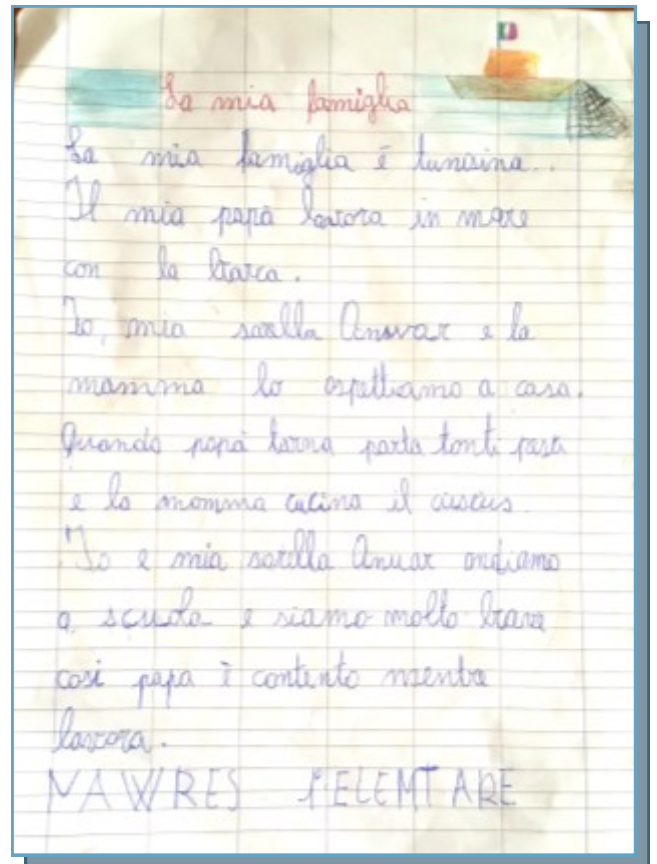 La mia famiglia
La mia famiglia è tunisina...
Il mia papà lavora in mare
con la barca.
Io, mia sorella Anovar e la
mamma lo aspettiamo a casa.
Quando papà torna porta tonti pesci
e la momma cucina il cuscus
Io e mia sorella Anuar ondiamo
a scuola e siamo molto brave
così papa è contento mentre
lavora.
NAWRES 1ª ELEMTARE